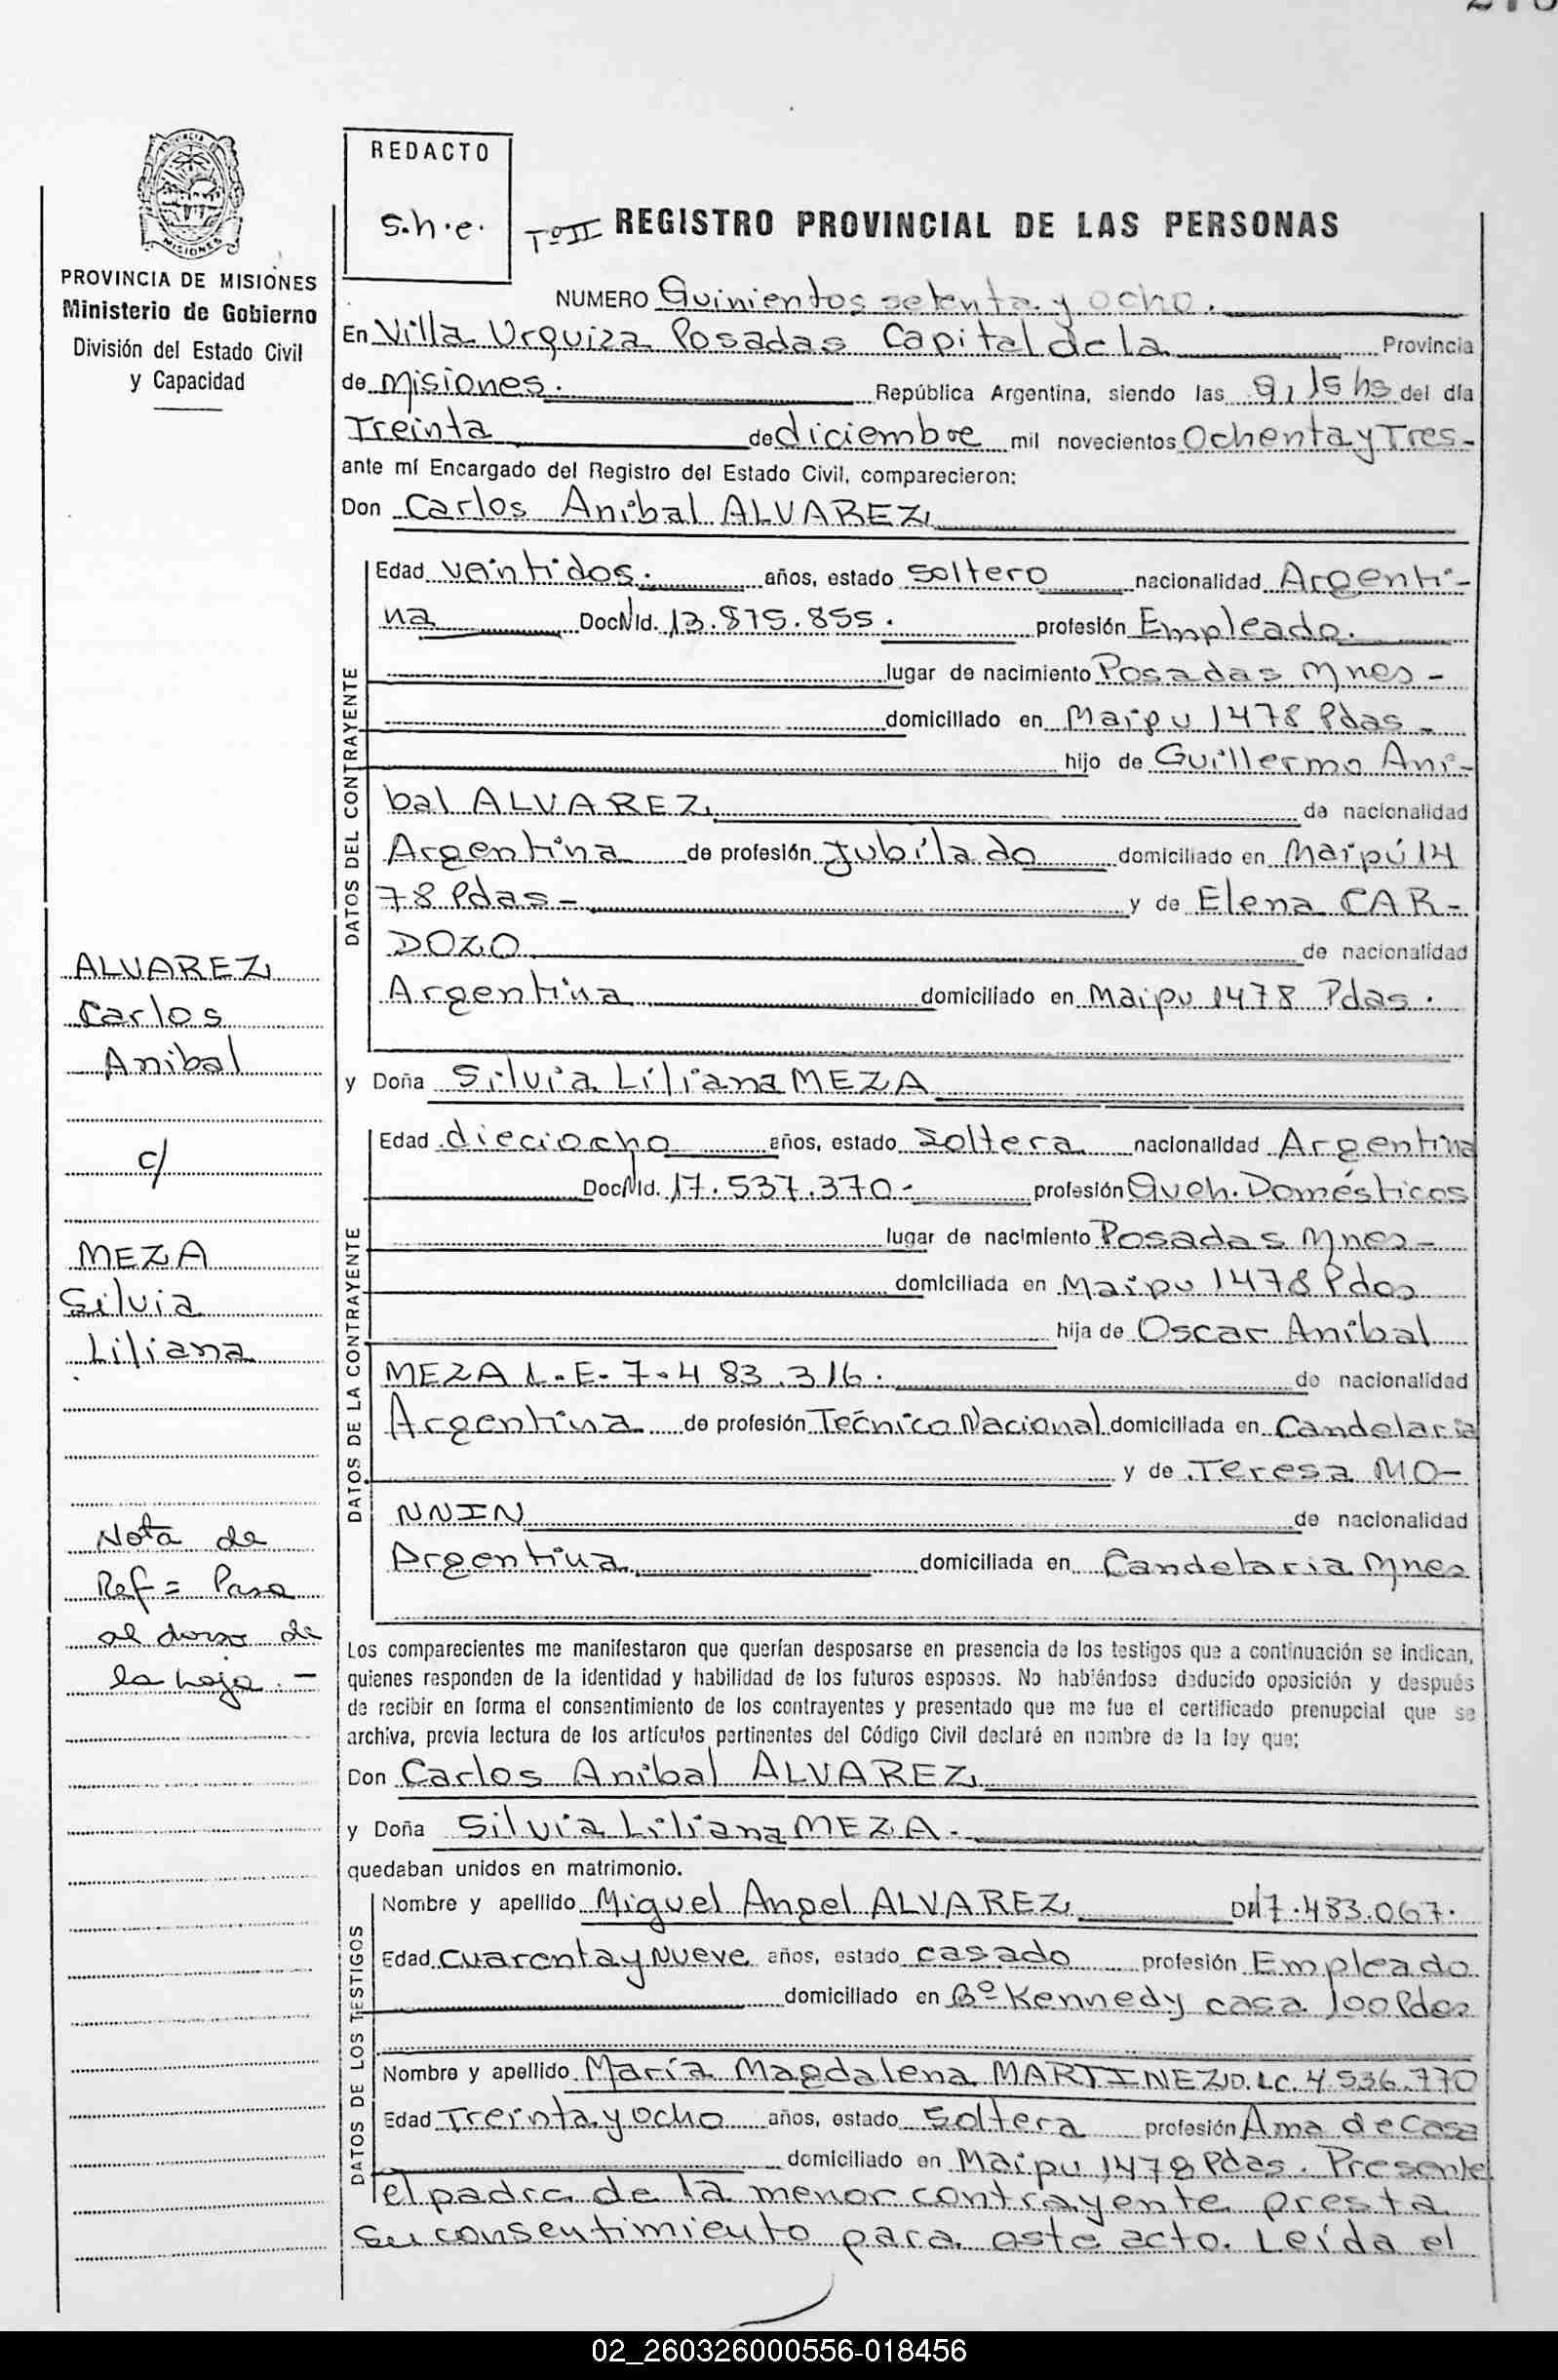 REDACTO
s.h.e.
Tº II REGISTRO PROVINCIAL DE LAS PERSONAS
PROVINCIA DE MISIONES
Ministerio de Gobierno
División del Estado Civil
y Capacidad
NUMERO Quinientos setenta y ocho.
En Villa Urquiza Posadas Capital de la Provincia
de Misiones. República Argentina, siendo las 9,15 hs del día
Treinta de diciembre mil novecientos Ochenta y Tres-
ante mí Encargado del Registro del Estado Civil, comparecieron:
Don Carlos Anibal ALVAREZ
DATOS DEL CONTRAYENTE
Edad veintidos. años, estado soltero nacionalidad Argenti-
na DocNId. 13.875.855. profesión Empleado.
lugar de nacimiento Posadas Mnes-
domiciliado en Maipu 1478 Pdas-
hijo de Guillermo Ani-
bal ALVAREZ de nacionalidad
Argentina de profesión Jubilado domiciliado en Maipú 14
78 Pdas- y de Elena CAR-
DOZO de nacionalidad
Argentina domiciliado en Maipu 1478 Pdas.
y Doña Silvia Liliana MEZA
DATOS DE LA CONTRAYENTE
Edad dieciocho años, estado Soltera nacionalidad Argentina
DocNId. 17.537.370- profesión Queh. Domésticos
lugar de nacimiento Posadas Mnes-
domiciliada en Maipu 1478 Pdas
hija de Oscar Anibal
MEZA L.E-7.483.316. de nacionalidad
Argentina de profesión Tecnico Nacional domiciliada en Candelaria
y de Teresa MO-
NNIN de nacionalidad
Argentina domiciliada en Candelaria Mnes
Los comparecientes me manifestaron que querían desposarse en presencia de los testigos que a continuación se indican,
quienes responden de la identidad y habilidad de los futuros esposos. No habiéndose deducido oposición y después
de recibir en forma el consentimiento de los contrayentes y presentado que me fue el certificado prenupcial que se
archiva, previa lectura de los artículos pertinentes del Código Civil declaré en nombre de la ley que;
Don Carlos Anibal ALVAREZ
y Doña Silvia Liliana MEZA.
quedaban unidos en matrimonio.
DATOS DE LOS TESTIGOS
Nombre y apellido Miguel Angel ALVAREZ 7.483.067.
Edad cuarenta y Nueve años, estado casado profesión Empleado
domiciliado en Bº Kennedy casa 100 Pdas
Nombre y apellido María Magdalena MARTINEZ D. LC. 4.536.770
Edad Treinta y ocho años, estado Soltera profesión Ama de Casa
domiciliado en Maipu 1478 Pdas. Presente
el padre de la menor contrayente presta
su consentimiento para este acto. Leída el
ALVAREZ
Carlos
Anibal
c/
MEZA
Silvia
Liliana
Nota de
Ref = Pasa
al dorso de
la hoja.-
02_260326000556-018456